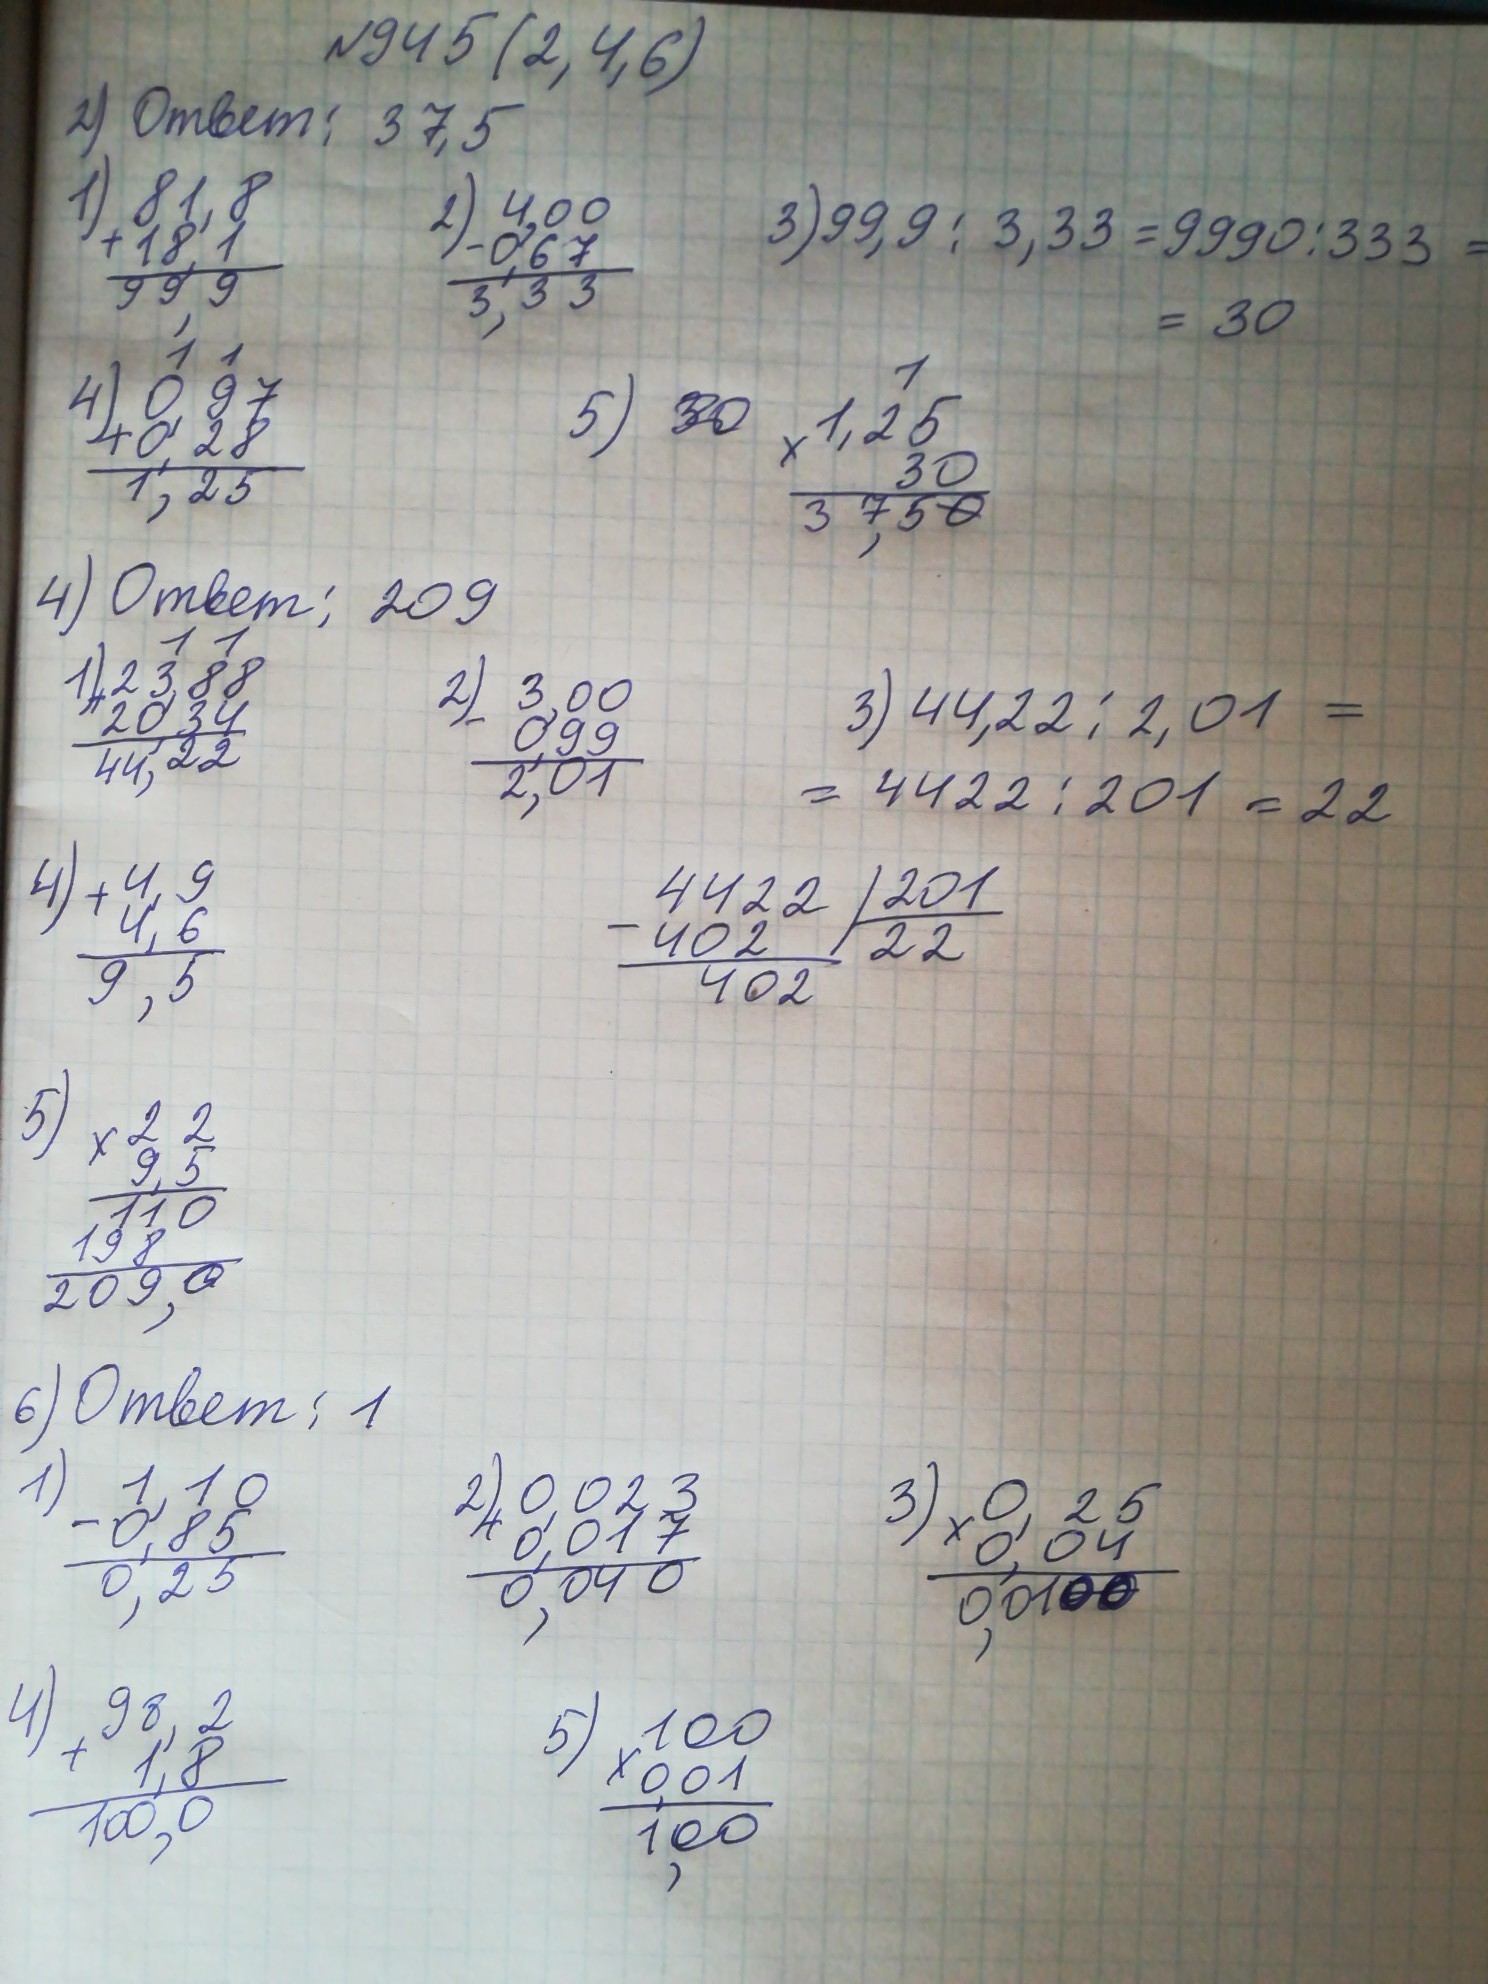 №945 (2,4,6)
2) Ответ: 37,5
1) 81,8
+18,1
99,9
2) 4,00
-0,67
3,33
3) 99,9 : 3,33 = 9990 : 333 =
= 30
1 1
4) 0,97
+0,28
1,25
5) 30
1
× 1,25
30
37,50
4) Ответ: 209
1 1
1) +23,88
20,34
44,22
2) 3,00
- 0,99
2,01
3) 44,22 : 2,01 =
= 4422 : 201 = 22
4) + 4,9
4,6
9,5
4422 | 201
- 402 22
402
5) × 22
9,5
110
198
209,0
6) Ответ: 1
1) 1,10
- 0,85
0,25
2) 0,023
+ 0,017
0,040
3) × 0,25
0,04
0,0100
4) 98,2
+ 1,8
100,0
5) 100
× 0,01
1,00